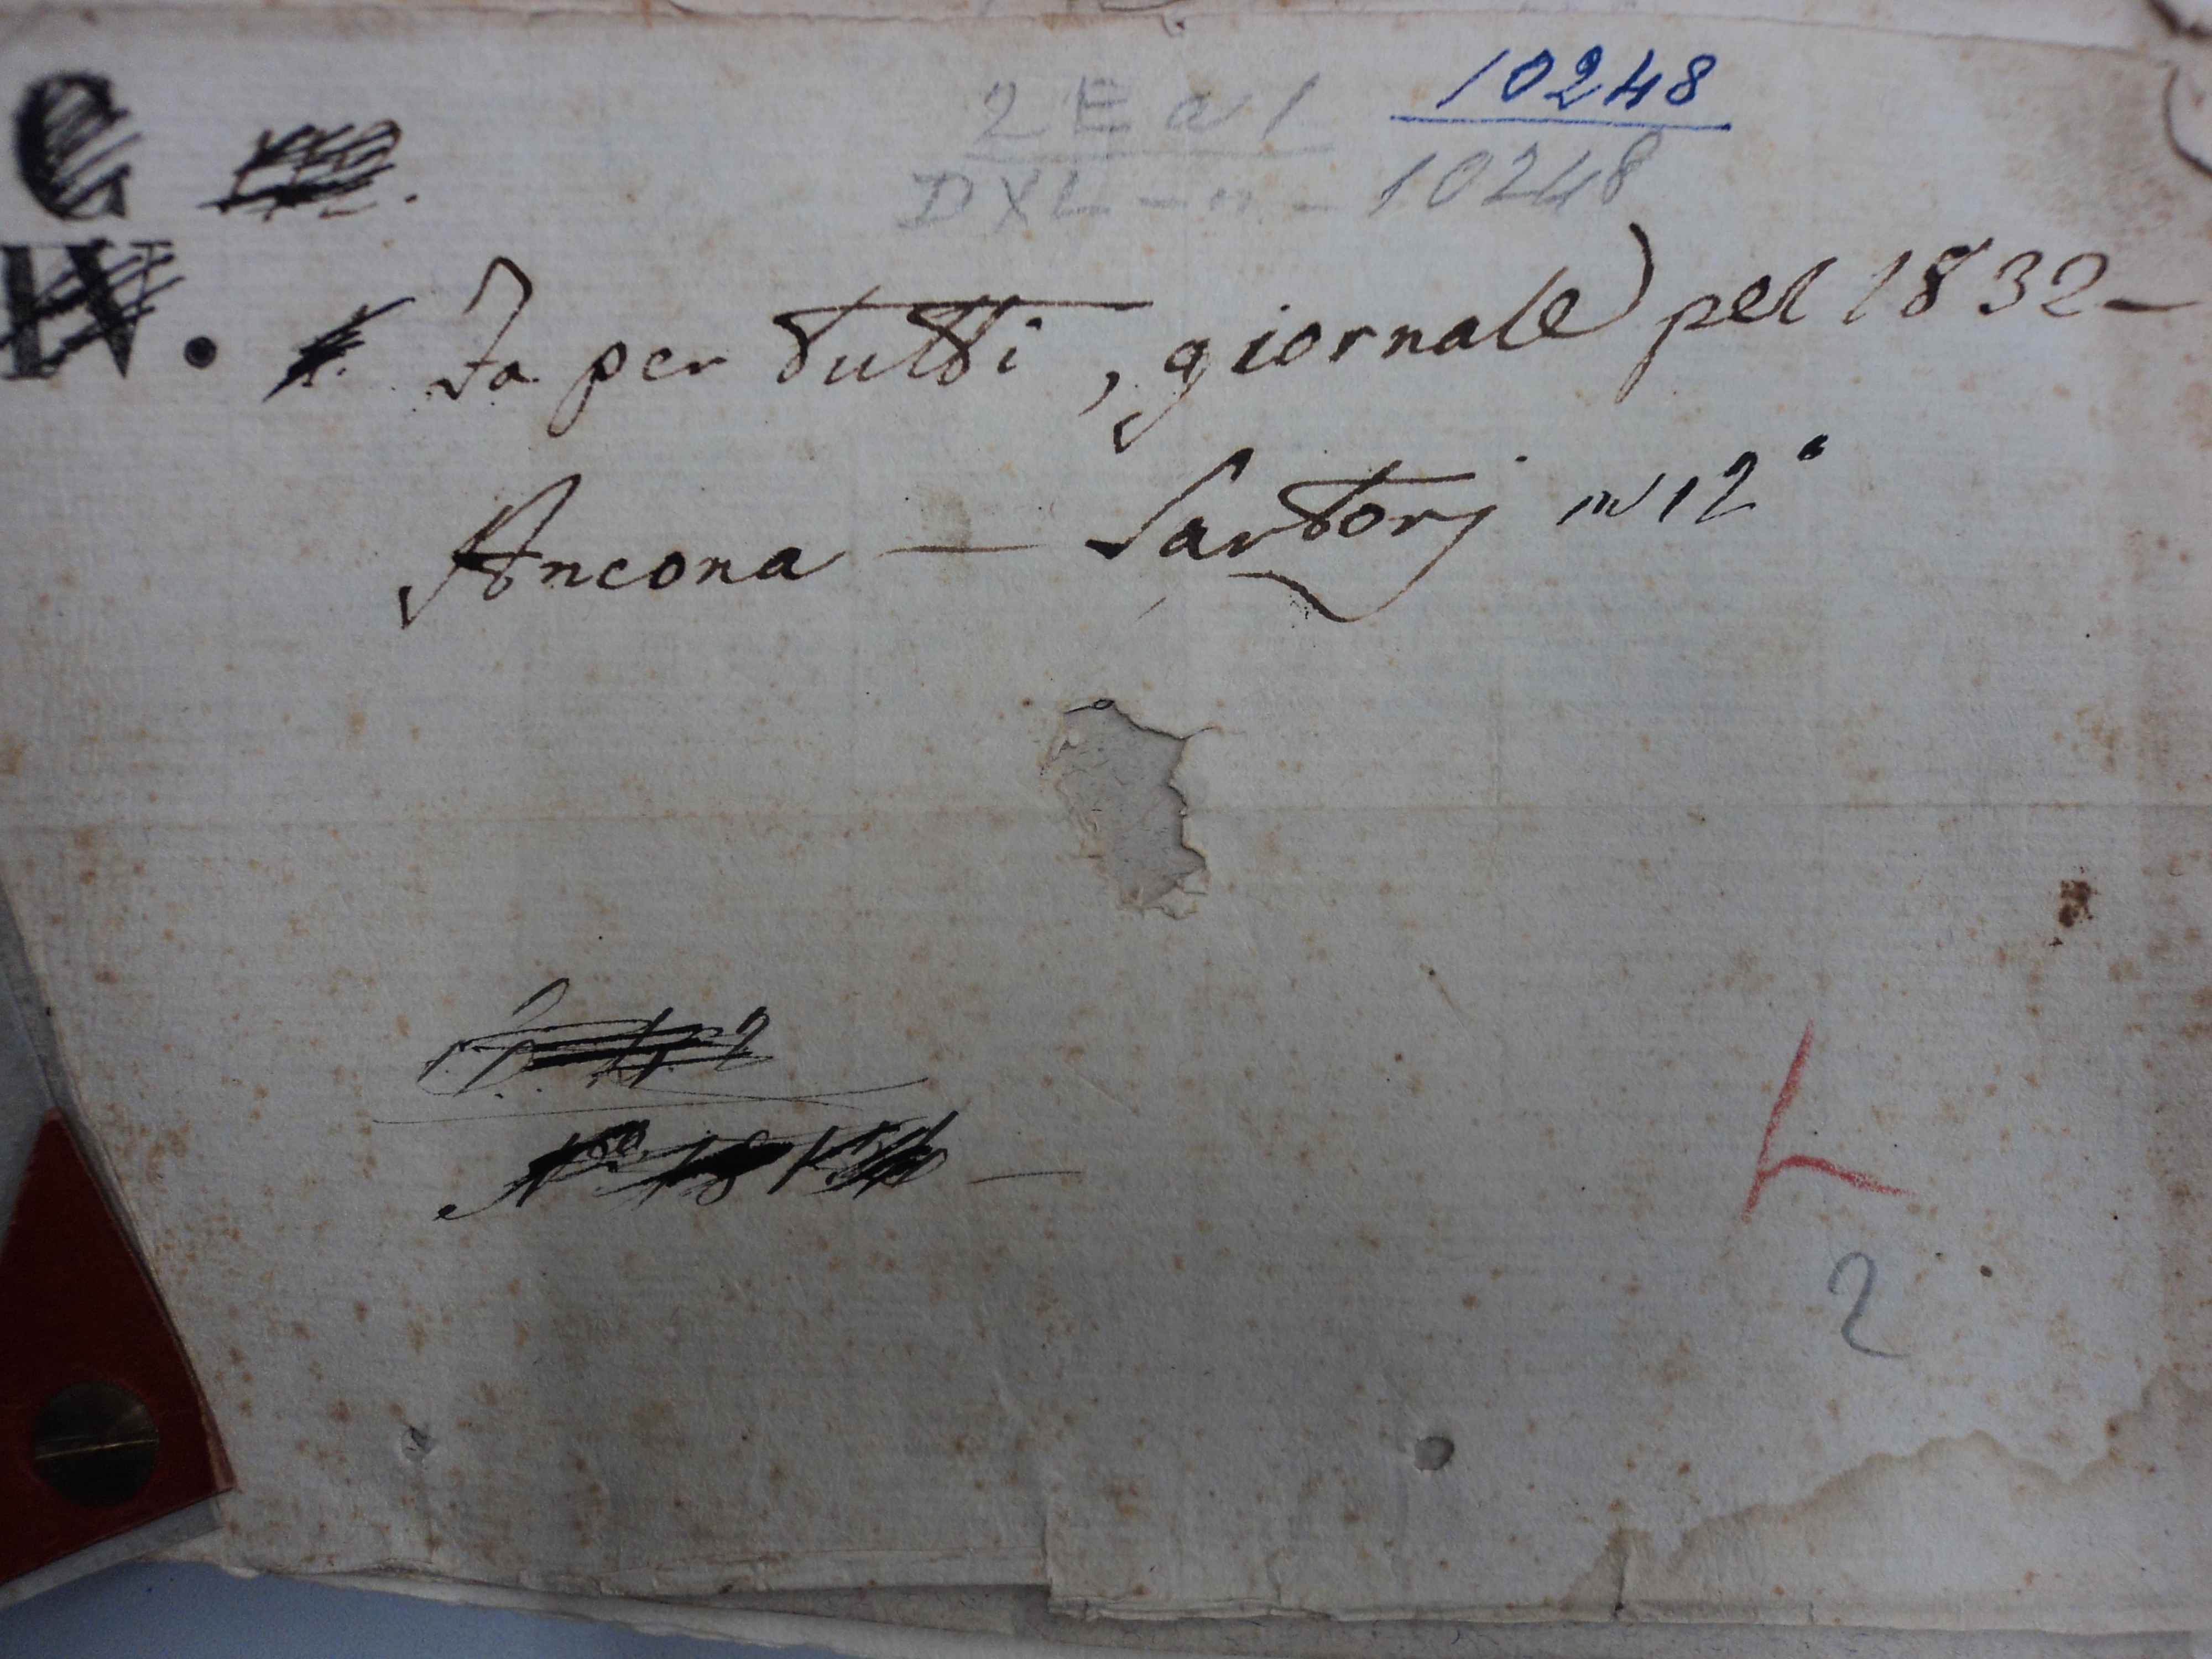 10248
2 E a 1
DXL - n - 10248
Fa per tutti, giornale pel 1832-
Ancona — Sartorj in 12°
L
2